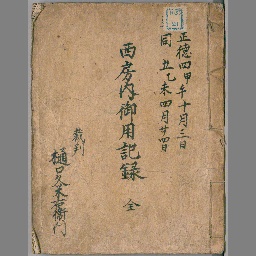 正徳四甲午十月三日
同五乙未四月廿四日
西房内御用記録 全
裁判
樋口久米右衛門